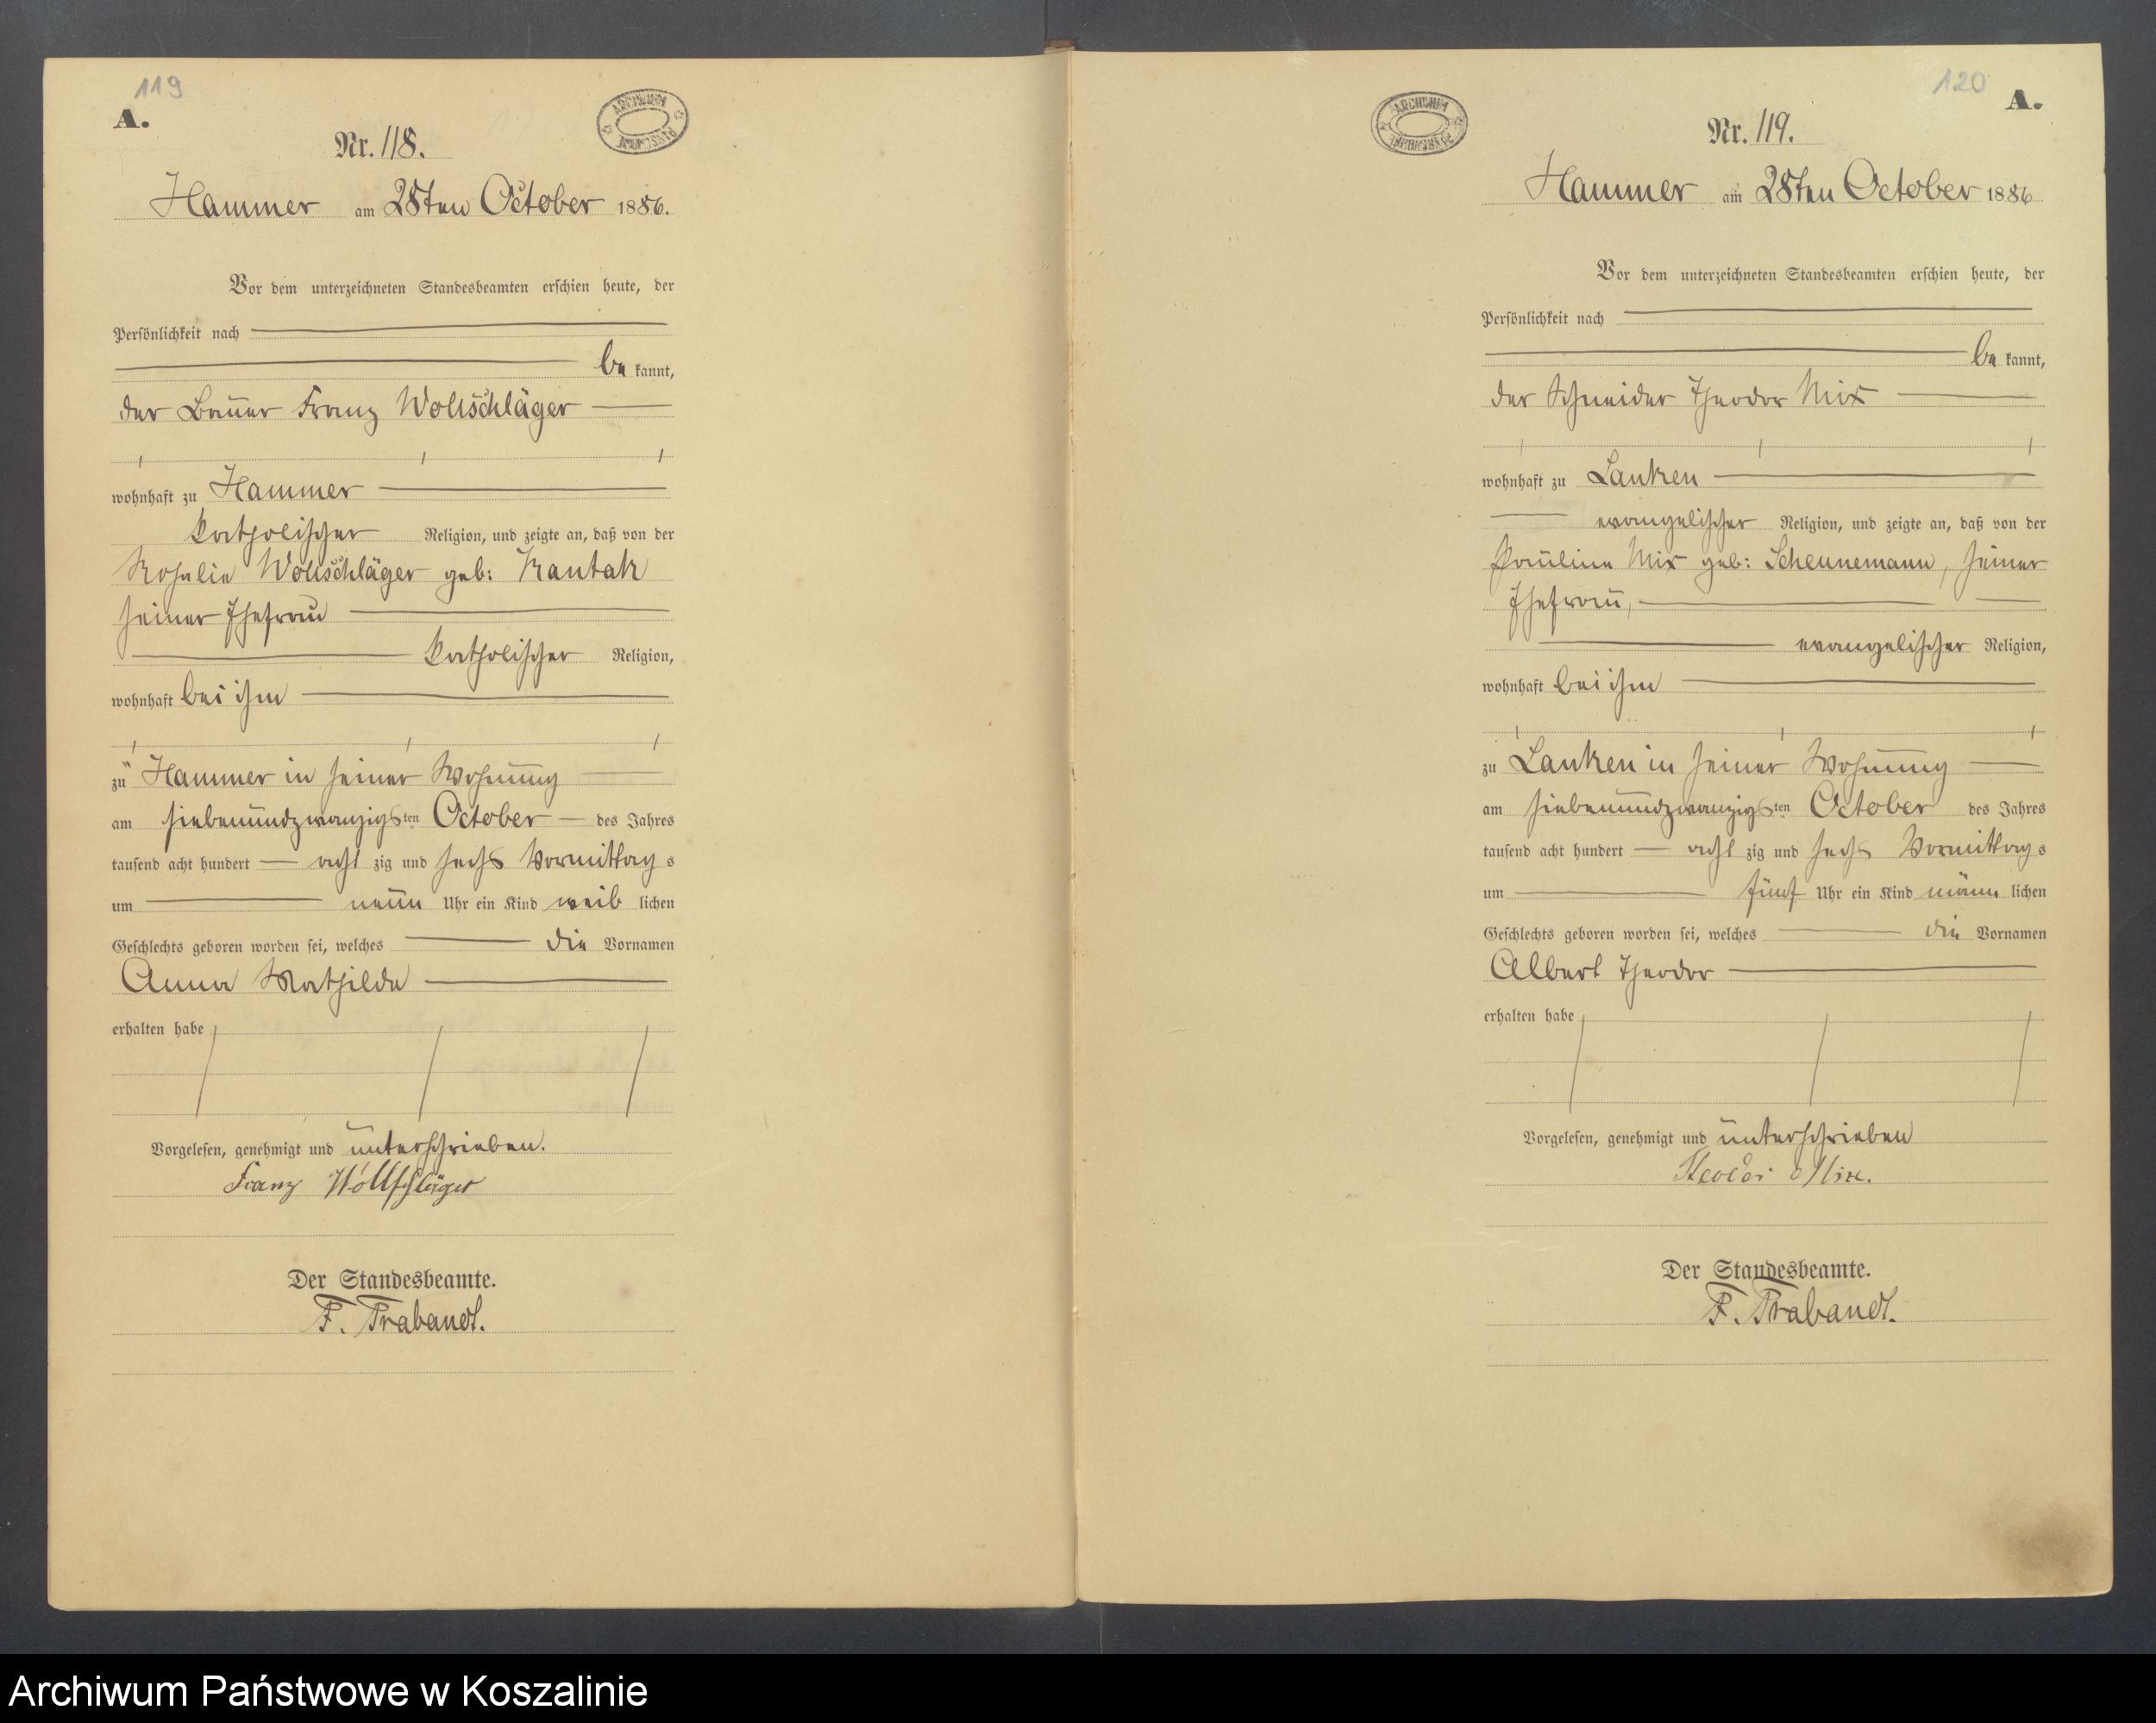 119
A.
ARCHIWUM PAŃSTWOWE
Nr. 118.
Hammer am 28ten October 1886.
Vor dem unterzeichneten Standesbeamten erschien heute, der
Persönlichkeit nach
be kannt,
der Bauer Franz Wollschläger
wohnhaft zu Hammer
katholischer Religion, und zeigte an, daß von der
Rosalie Wollschläger geb: Kantak
seiner Ehefrau
katholischer Religion,
wohnhaft bei ihm
zu Hammer in seiner Wohnung
am siebenundzwanzigsten October des Jahres
tausend acht hundert acht zig und sechs Vormittags
um neun Uhr ein Kind weib lichen
Geschlechts geboren worden sei, welches die Vornamen
Anna Mathilde
erhalten habe
Vorgelesen, genehmigt und unterschrieben.
Franz Wollschläger
Der Standesbeamte.
F. Trabandt.
120
A.
ARCHIWUM PAŃSTWOWE
Nr. 119.
Hammer am 28ten October 1886
Vor dem unterzeichneten Standesbeamten erschien heute, der
Persönlichkeit nach
be kannt,
der Schneider Theodor Mix
wohnhaft zu Lanken
evangelischer Religion, und zeigte an, daß von der
Pauline Mix geb: Scheunemann, seiner
Ehefrau,
evangelischer Religion,
wohnhaft bei ihm
zu Lanken in seiner Wohnung
am siebenundzwanzigsten October des Jahres
tausend acht hundert acht zig und sechs Vormittags
um fünf Uhr ein Kind männ lichen
Geschlechts geboren worden sei, welches die Vornamen
Albert Theodor
erhalten habe
Vorgelesen, genehmigt und unterschrieben
Theodor Mix.
Der Standesbeamte.
F. Trabandt.
Archiwum Państwowe w Koszalinie